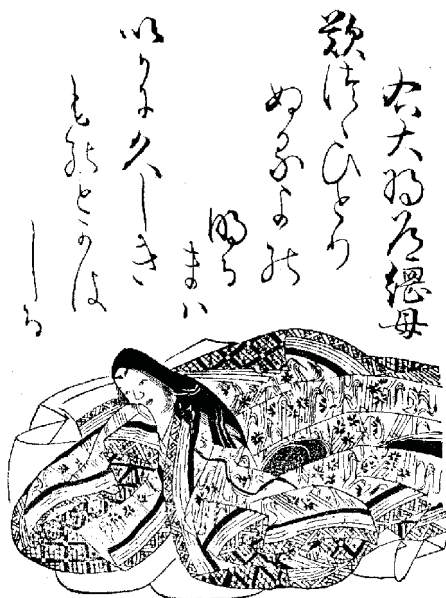 右大将道綱母
歎つゝひとり
ぬるよの
明る
まハ
いかに久しき
ものとかは
しる